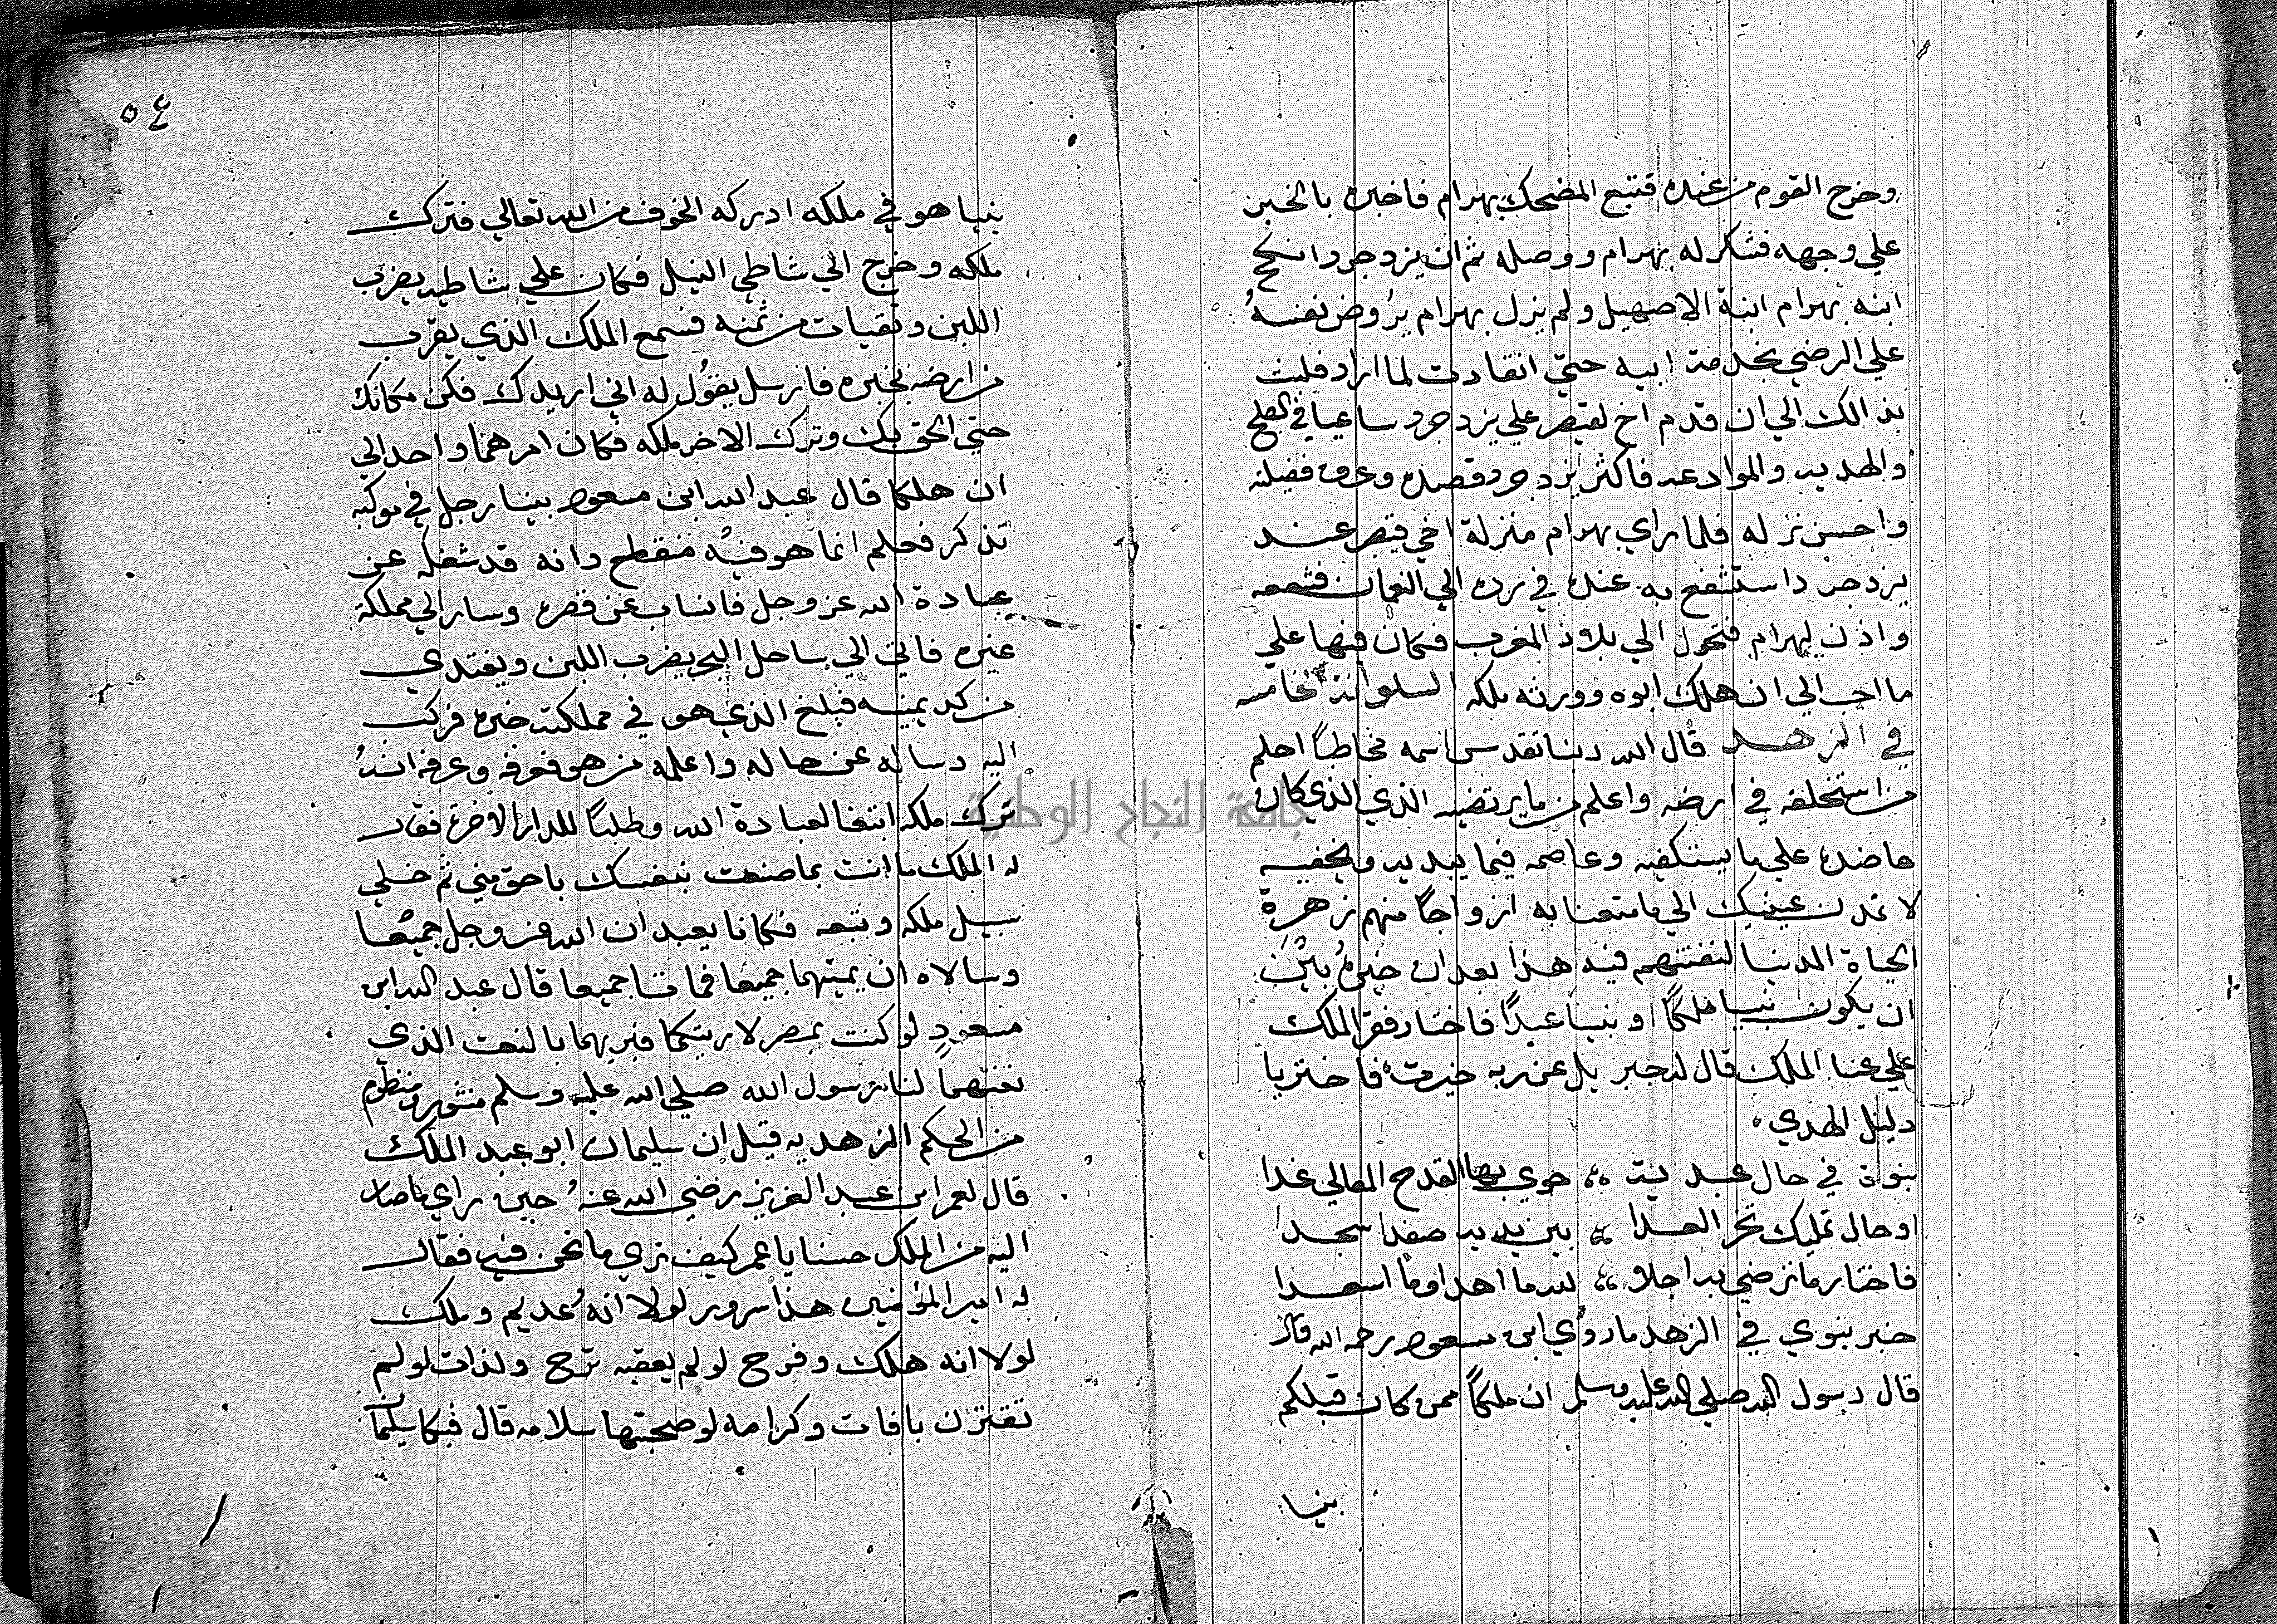 وخرج القوم من عنده فتبع المضحك بهرام فاخبره بالخبر
علي وجهه فشكر له بهرام ووصله ثم ان يزدجرد انكح
ابنه بهرام ابنة الاصهيل ولم يزل بهرام يروض نفسهُ
علي الرضي بخدمة ابيه حتي انقادت لما اراد فلبث
بذالك الي ان قدم اخ لقيصر علي يزدجرد ساعيا في الصلح
والهديه والموادعه فاكثر يزدجرد قصده وعرف فضيلته
واحسن نزله فلما راي بهرام منزلة اخي قيصر عند
يزدجرد استشفع به عنده في رده الي النعمان فشفعه
واذن لبهرام فتحول الي بلاد المغرب فكان فيها علي
ما احب الي ان هلك ابوه وورثه ملكه السلوانة الخامسه
في الزهد قال الله ربنا تقدس اسمه مخاطباً احلم
من استخلفه في ارضه واعلم من ما يرتضيه الذي الذي كان
عاضده علي ما يستكفيه وعاصمه فيما يبديه ويخفيه
لا تمدن عينيك الي ما متعنا به ازواجاً منهم زهرة
الحياة الدنيا لنفتنهم فيه هذا بعد ان خيرهُ بين
ان يكون نبيا ملكاً او نبيا عبداً فاختار فقر الملك
علي غنا الملك قال لجبر بل عن ربه خيرت فاختر يا
دليل الهدي .
نبوة في حال عبد يت ،، حوي بها القدح المعالي غدا
او حال تمليك تخر العدا ،، بين يديه صفدا سجدا
فاختار ما ترضي به اجلا ،، لله ما اهدا وما اسعدا
خبر نبوي في الزهد ما روي ابن مسعود رحمه الله قال
قال رسول الله صلي الله عليه وسلم ان ملكاً ممن كان قبلكم
بنيا
٥٤
بنيا هو في ملكه ادركه الخوف من الله تعالي فترك
ملكه وخرج الي شاطي النيل فكان علي شاطيه يضرب
اللبن وتقيات من ثمنه فسمع الملك الذي يقرب
من ارضه بخبره فارسل يقول له اني اريدك فكن مكانك
حتي الحق بك وترك الاخر ملكه فكان امرهما واحد الي
ان هلكا قال عبد الله ابن مسعود بينا رجل في موكبه
تذكر فعلم انما هو فيه منقطع وانه قد شغله عن
عبادة الله عز وجل فانساب عن قصره وسار الي مملكة
غيره فاتي الي ساحل البحر يضرب اللبن ويغتدي
من كد يمينه فبلغ الذي هو في مملكته خبره فركب
اليه وساله عن حاله واعلمه من هو فعرفه وعرف انهُ
ترك ملكه ابتغا لعبادة الله وطلباً للدار الاخرة فقال
له الملك ما انت بما صنعت بنفسك باحق مني ثم خلي
سبيل ملكه وتبعه فكانا يعبدان الله عز وجل جميعا
وسالاه ان يميتهما جميعا فماتا جميعا قال عبد الله ابن
مسعود لو كنت بمصر لاريتكما قبريهما بالنعت الذي
نعتهما لنا رسول الله صلي الله عليه وسلم منثور ومنظوم
من الحكم الزهديه قيل ان سليمان ابو عبد الملك
قال لعمر ابن عبد العزيز رضي الله عنهُ حين راي ما صار
اليه من الملك حسنا يا عمر كيف تري ما نحن فيه فقال
له امير المؤمنين هذا سرور لولا انهُ عديم وملك
لولا انه هلك وفرح لو لم يعقبه ترح ولذات لو لم
تقترن بافات وكرامه لو صحبتها سلامه قال فبكا سليمان